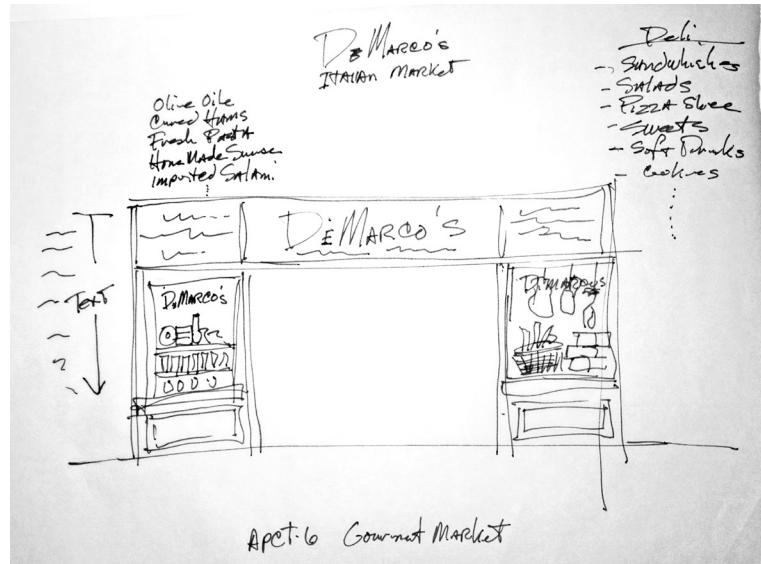 DeMarco's
Italian Market
Deli
- Salads
- Pizza Slice
- Sweets
- Soft Drinks
- Cookies
Olive
Cured Hams
Fresh Pasta
Home Made
Imported Salami
DeMarco's
DeMarco's
DeMarco's
Text
APCT-6 Gourmet Market